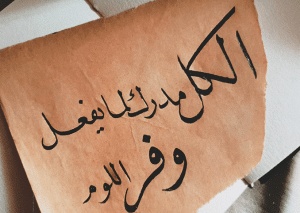 الكل مدرك لما يفعل
وفر اللوم